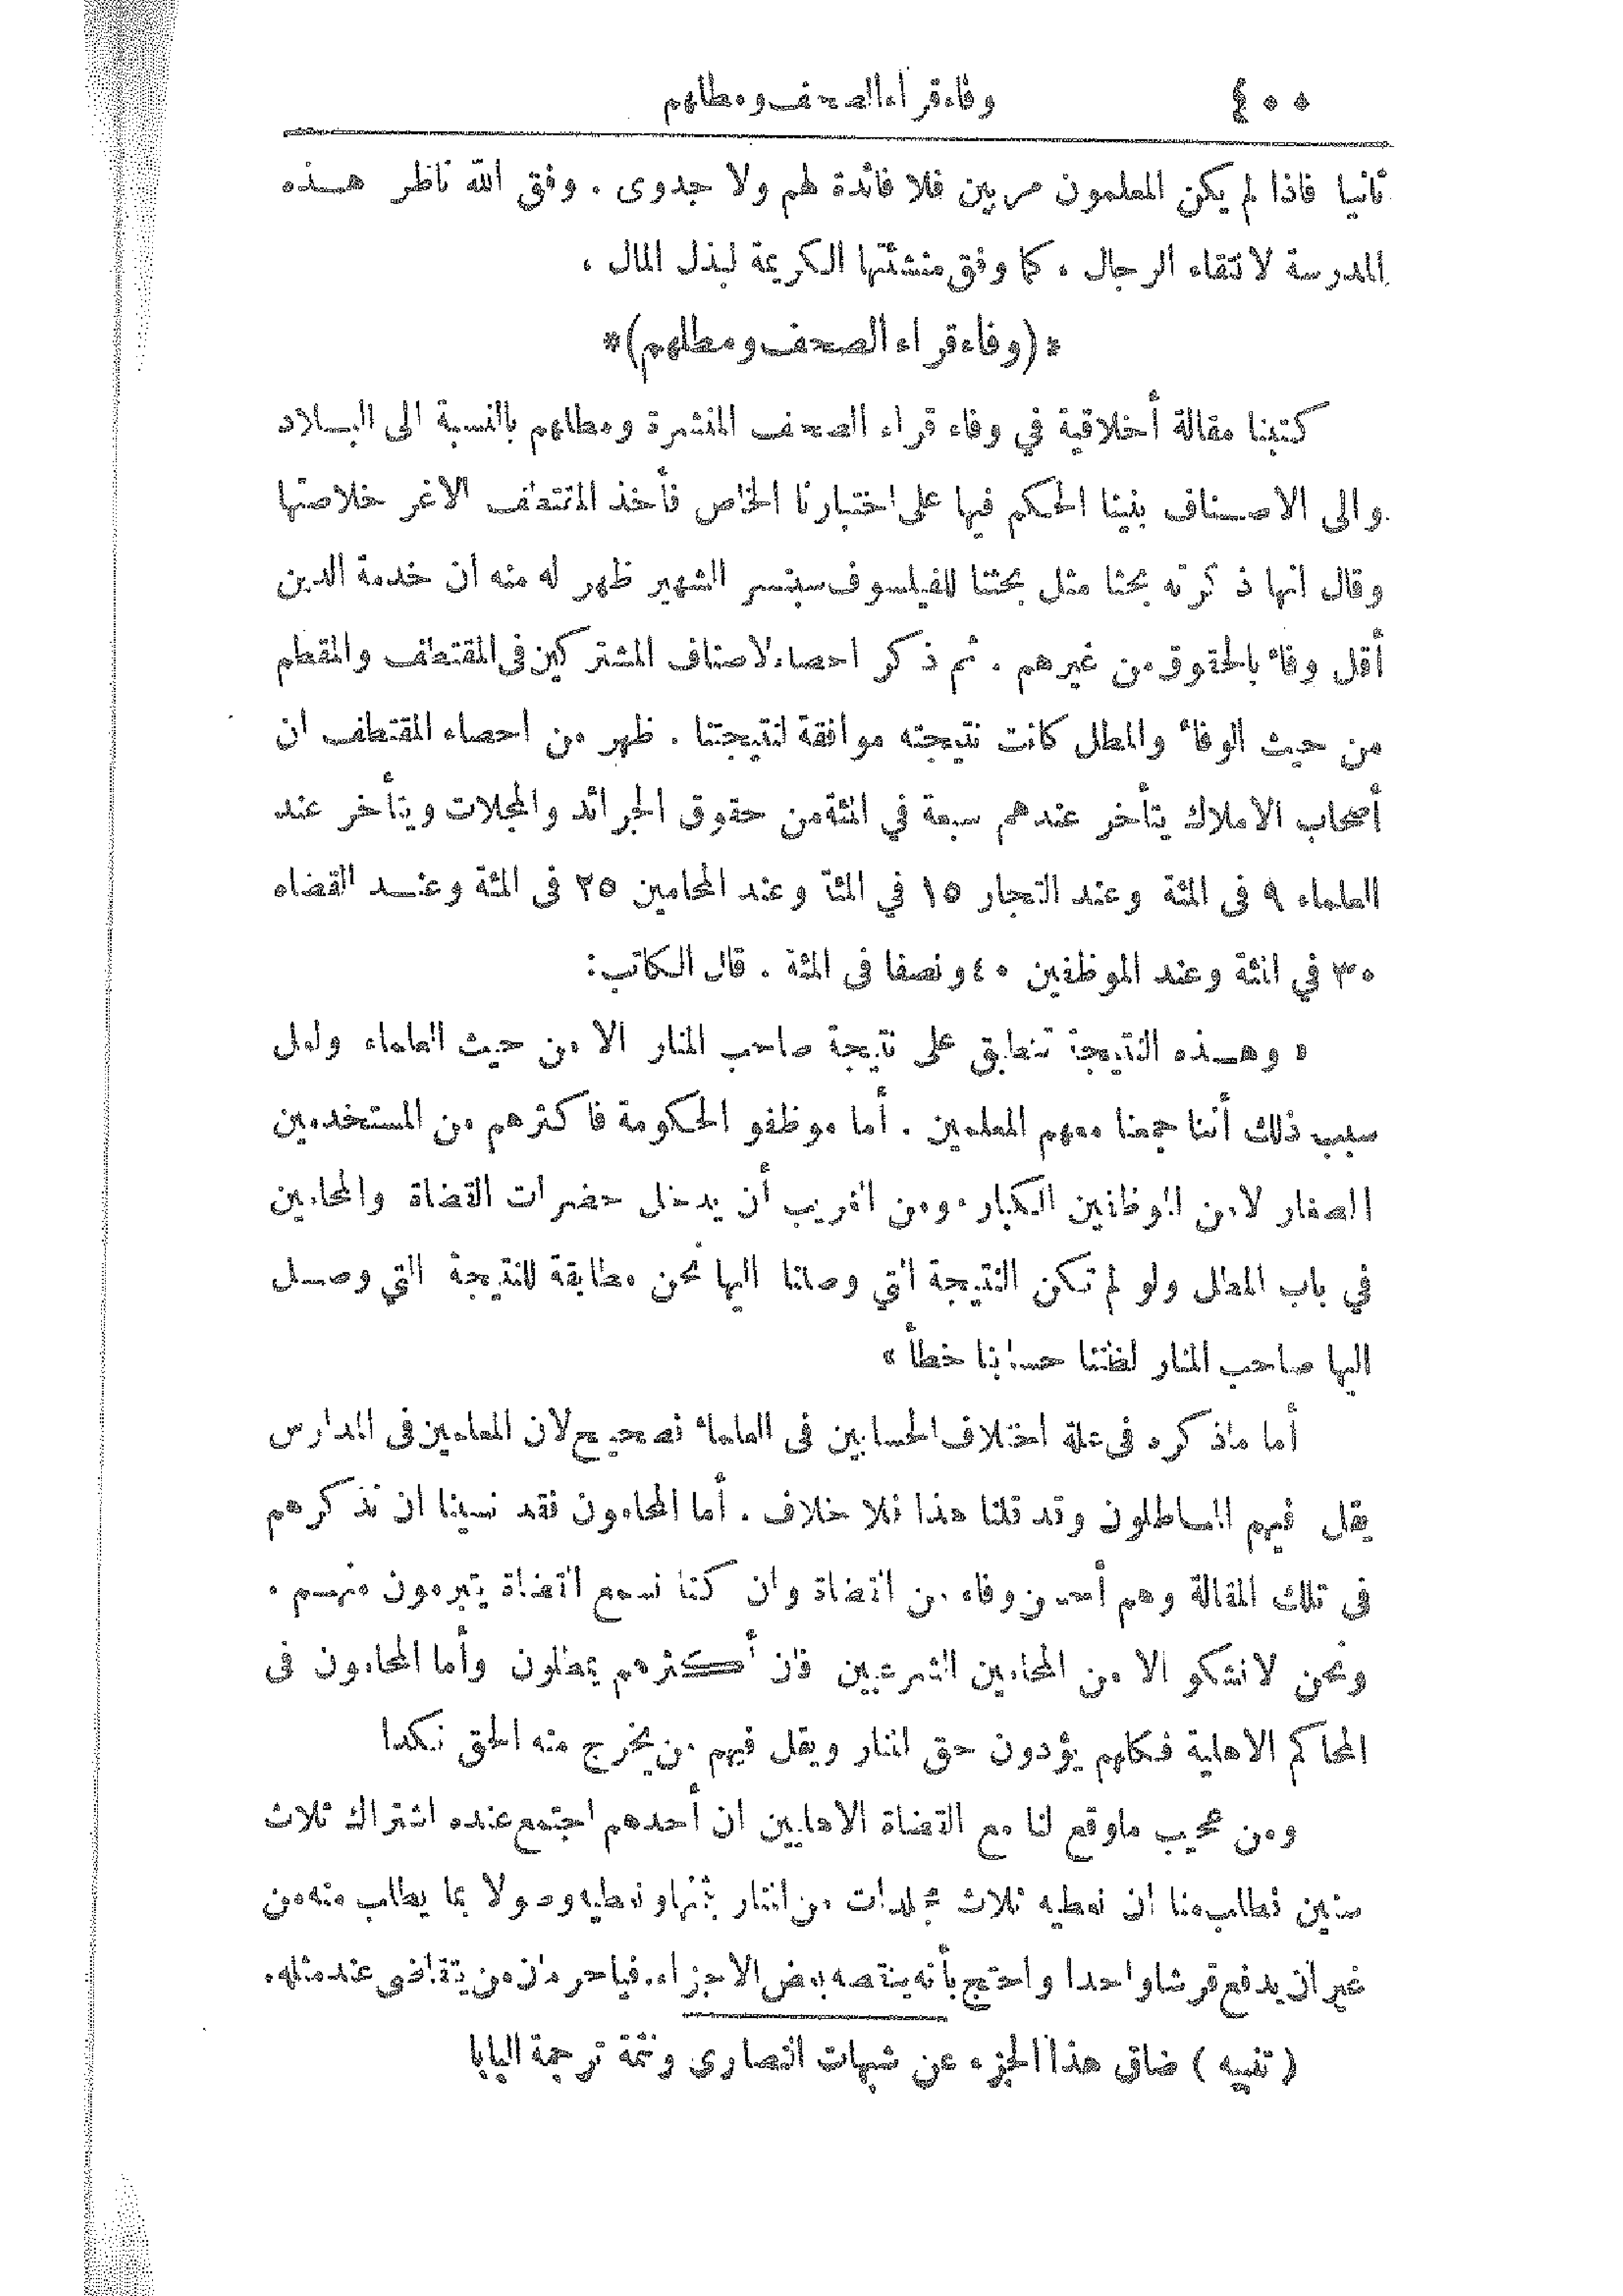 ٤٠٠ وفاء قراء الصحف ومطلهم
ثانيا فاذا لم يكن المعلمون مربين فلا فائدة لهم ولا جدوى . وفق الله ناظر هـذه
المدرسة لانتقاء الرجال ، كما وفق منشئتها الكريمة لبذل المال ،
*(وفاء قراء الصحف ومطلهم)*
كتبنا مقالة أخلاقية في وفاء قراء الصحف المنشرة ومطلهم بالنسبة الى البـلاد
والى الاصـناف بنينا الحكم فيها على اختبارنا الخاص فأخذ المقتطف الاغر خلاصتها
وقال انها ذكرته بحثا مثل بحثنا للفيلسوف سبنسر الشهير ظهر له منه ان خدمة الدين
أقل وفاء بالحقوق من غيرهم . ثم ذكر احصاء لاصناف المشتركين فى المقتطف والمقطم
من حيث الوفاء والمطل كانت نتيجته موافقة لنتيجتنا . ظهر من احصاء المقتطف ان
أصحاب الاملاك يتأخر عندهم سبعة في المئة من حقوق الجرائد والمجلات ويتأخر عند
العلماء ٩ فى المئة وعند التجار ١٥ في المئة وعند المحامين ٢٥ فى المئة وعنـد القضاه
٣٠ في المئة وعند الموظفين ٤٠ ونصفا فى المئة . قال الكاتب:
« وهـذه النتيجة تنطبق على نتيجة صاحب المنار الا من حيث العلماء ولعل
سبب ذلك أننا جمعنا معهم المعلمين . أما موظفو الحكومة فاكثرهم من المستخدمين
الصغار لا من الموظفين الكبار ومن الغريب أن يدخل حضرات القضاة والمحامين
في باب المطل ولو لم تكن النتيجة التي وصلنا اليها نحن مطابقة للنتيجة التي وصـل
اليها صاحب المنار لظننا حسابنا خطأ »
أما ماذكره فى علة اختلاف الحسابين فى العلماء فصحيح لان المعلمين فى المدارس
يقل فيهم المماطلون وقد قلنا هذا فلا خلاف . أما المحامون فقد نسينا ان نذكرهم
فى تلك المقالة وهم أحسن وفاء من القضاة وان كنا نسمع القضاة يتبرمون منهـم .
ونحن لانشكو الا من المحامين الشرعيين فان أكثرهم يمطلون وأما المحامون فى
المحاكم الاهلية فكلهم يؤدون حق المنار ويقل فيهم من يخرج منه الحق نكدا
ومن عجيب ماوقع لنا مع القضاة الاهليين ان أحدهم اجتمع عنده اشتراك ثلاث
سنين فطلب منا ان نعطيه ثلاث مجلدات من المنار بثمنها ونعطيه وصولا بما يطلب منه من
غير ان يدفع قرشا واحدا واحتج بأنه ينقصه بعض الاجزاء. فياحرمان من يتقاضى عند مثله.
( تنبيه ) ضاق هذا الجزء عن شبهات النصارى وتتمة ترجمة البابا